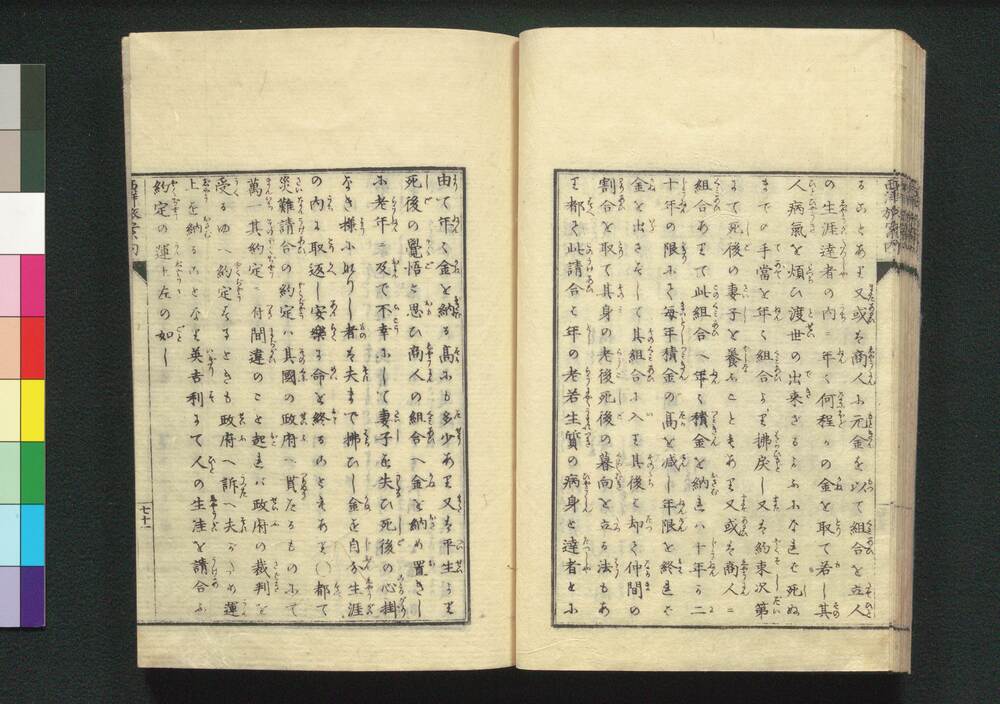 西洋旅案内
ることあり又或は商人に元金を以て組合を立人
の生涯達者の内ニ年々何程かの金を取て若し其
人病氣を煩ひ渡世の出来ざるよふになるか死ぬ
までの手當を年々組合より拂戻し又は約束次第
にて死後の妻子を養ふこともあり又或は商人ニ
組合ありて此組合へ年々積金を納れハ十年か二
十年の限にて毎年積金の高を減し年限を終れバ
金を出さずして其組合に入り其後は却て仲間の
割合を取て其身の老後死後の暮向を立る法もあ
り都て此請合は年の老若生質の病身と達者とに
由て年々金を納る高にも多少あり又は平生より
死後の覺悟と思ひ商人の組合へ金を納め置きし
に老年ニ及で不幸にして妻子を失ひ死後の心掛
なき様になりし者は夫まで拂ひし金を自分生涯
の内に取返し安樂に命を終ることもあり〇都て
災難請合の約定ハ其國の政府へ届たるものにて
萬一其約定ニ付間違のこと起れバ政府の裁判を
受るゆへ約定なるときも政府へ訴へ夫がため運
上を納ることなり英吉利にて人の生涯を請合ふ
約定の運上左の如し
七十一
西洋旅案内